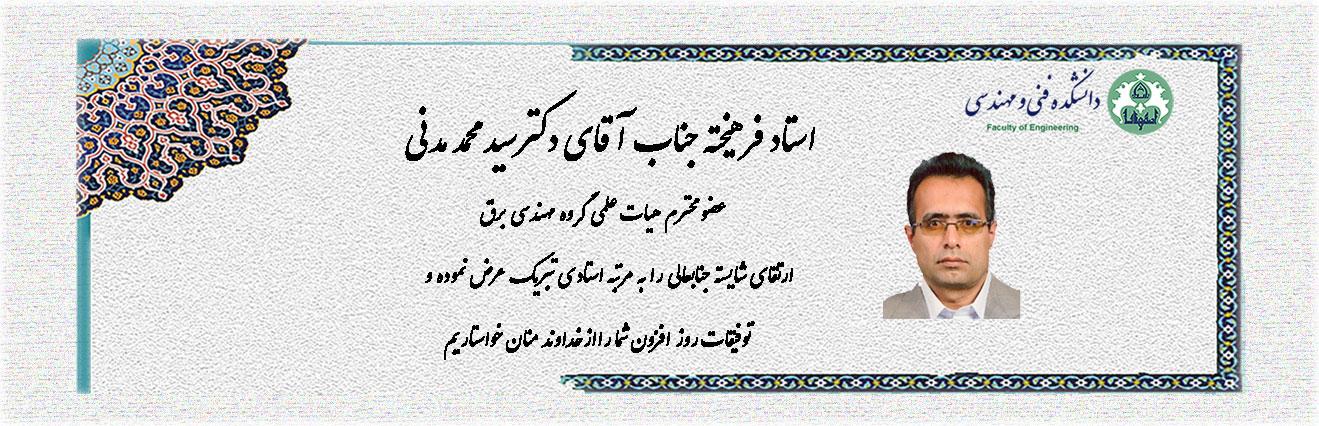 دانشکده فنی و مهندسی
Faculty of Engineering
اصفهان
استاد فرهیخته جناب آقای دکتر سید محمد مدنی
عضو محترم هیات علمی گروه مهندسی برق
ارتقای شایسته جنابعالی را به مرتبه استادی تبریک عرض نموده و
توفیقات روز افزون شما را از خداوند منان خواستاریم